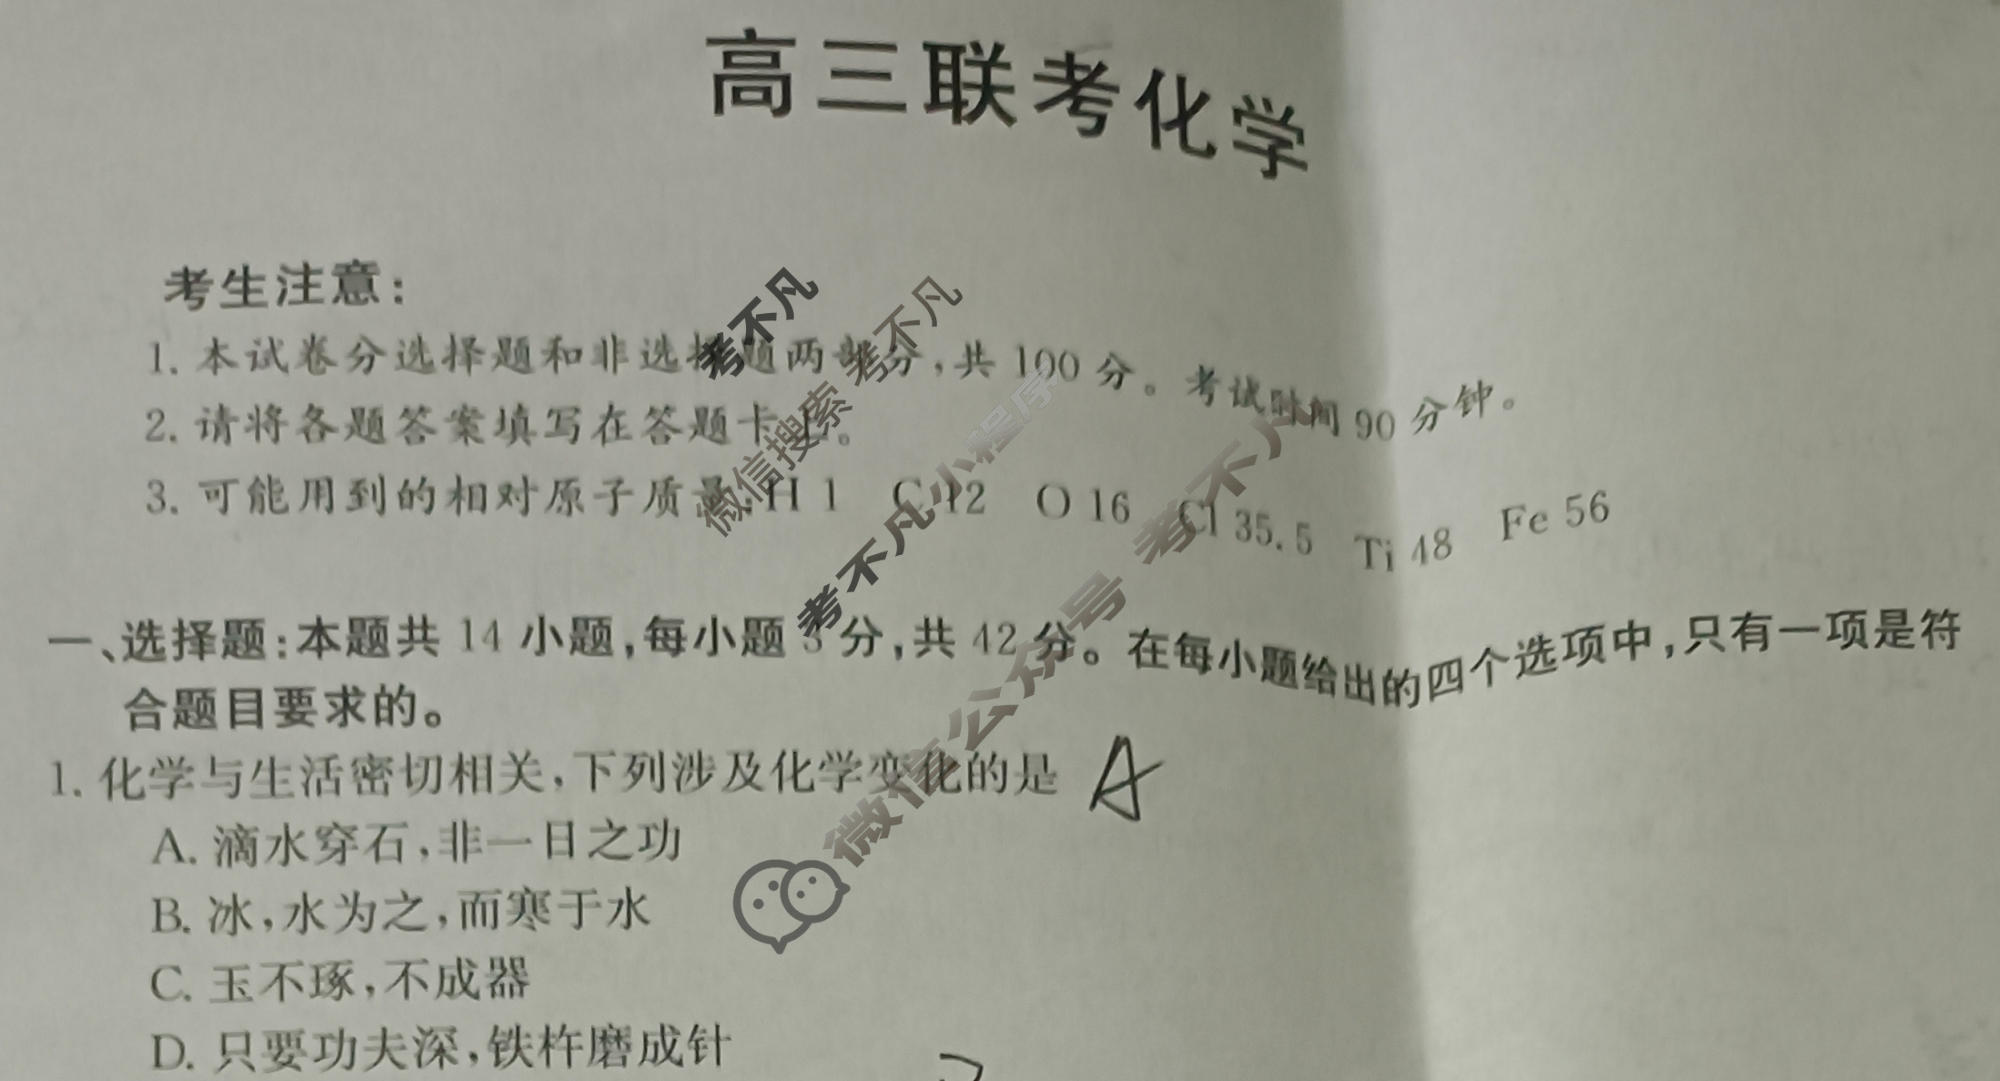 高三联考化学
考生注意:
1. 本试卷分选择题和非选择题两部分,共 100 分。考试时间 90 分钟。
2. 请将各题答案填写在答题卡上。
3. 可能用到的相对原子质量:H 1 C 12 O 16 Cl 35.5 Ti 48 Fe 56
一、选择题:本题共 14 小题,每小题 3 分,共 42 分。在每小题给出的四个选项中,只有一项是符
合题目要求的。
1. 化学与生活密切相关,下列涉及化学变化的是 A
A. 滴水穿石,非一日之功
B. 冰,水为之,而寒于水
C. 玉不琢,不成器
D. 只要功夫深,铁杵磨成针
考不凡
微信搜索 考不凡
考不凡小程序
微信公众号 考不凡